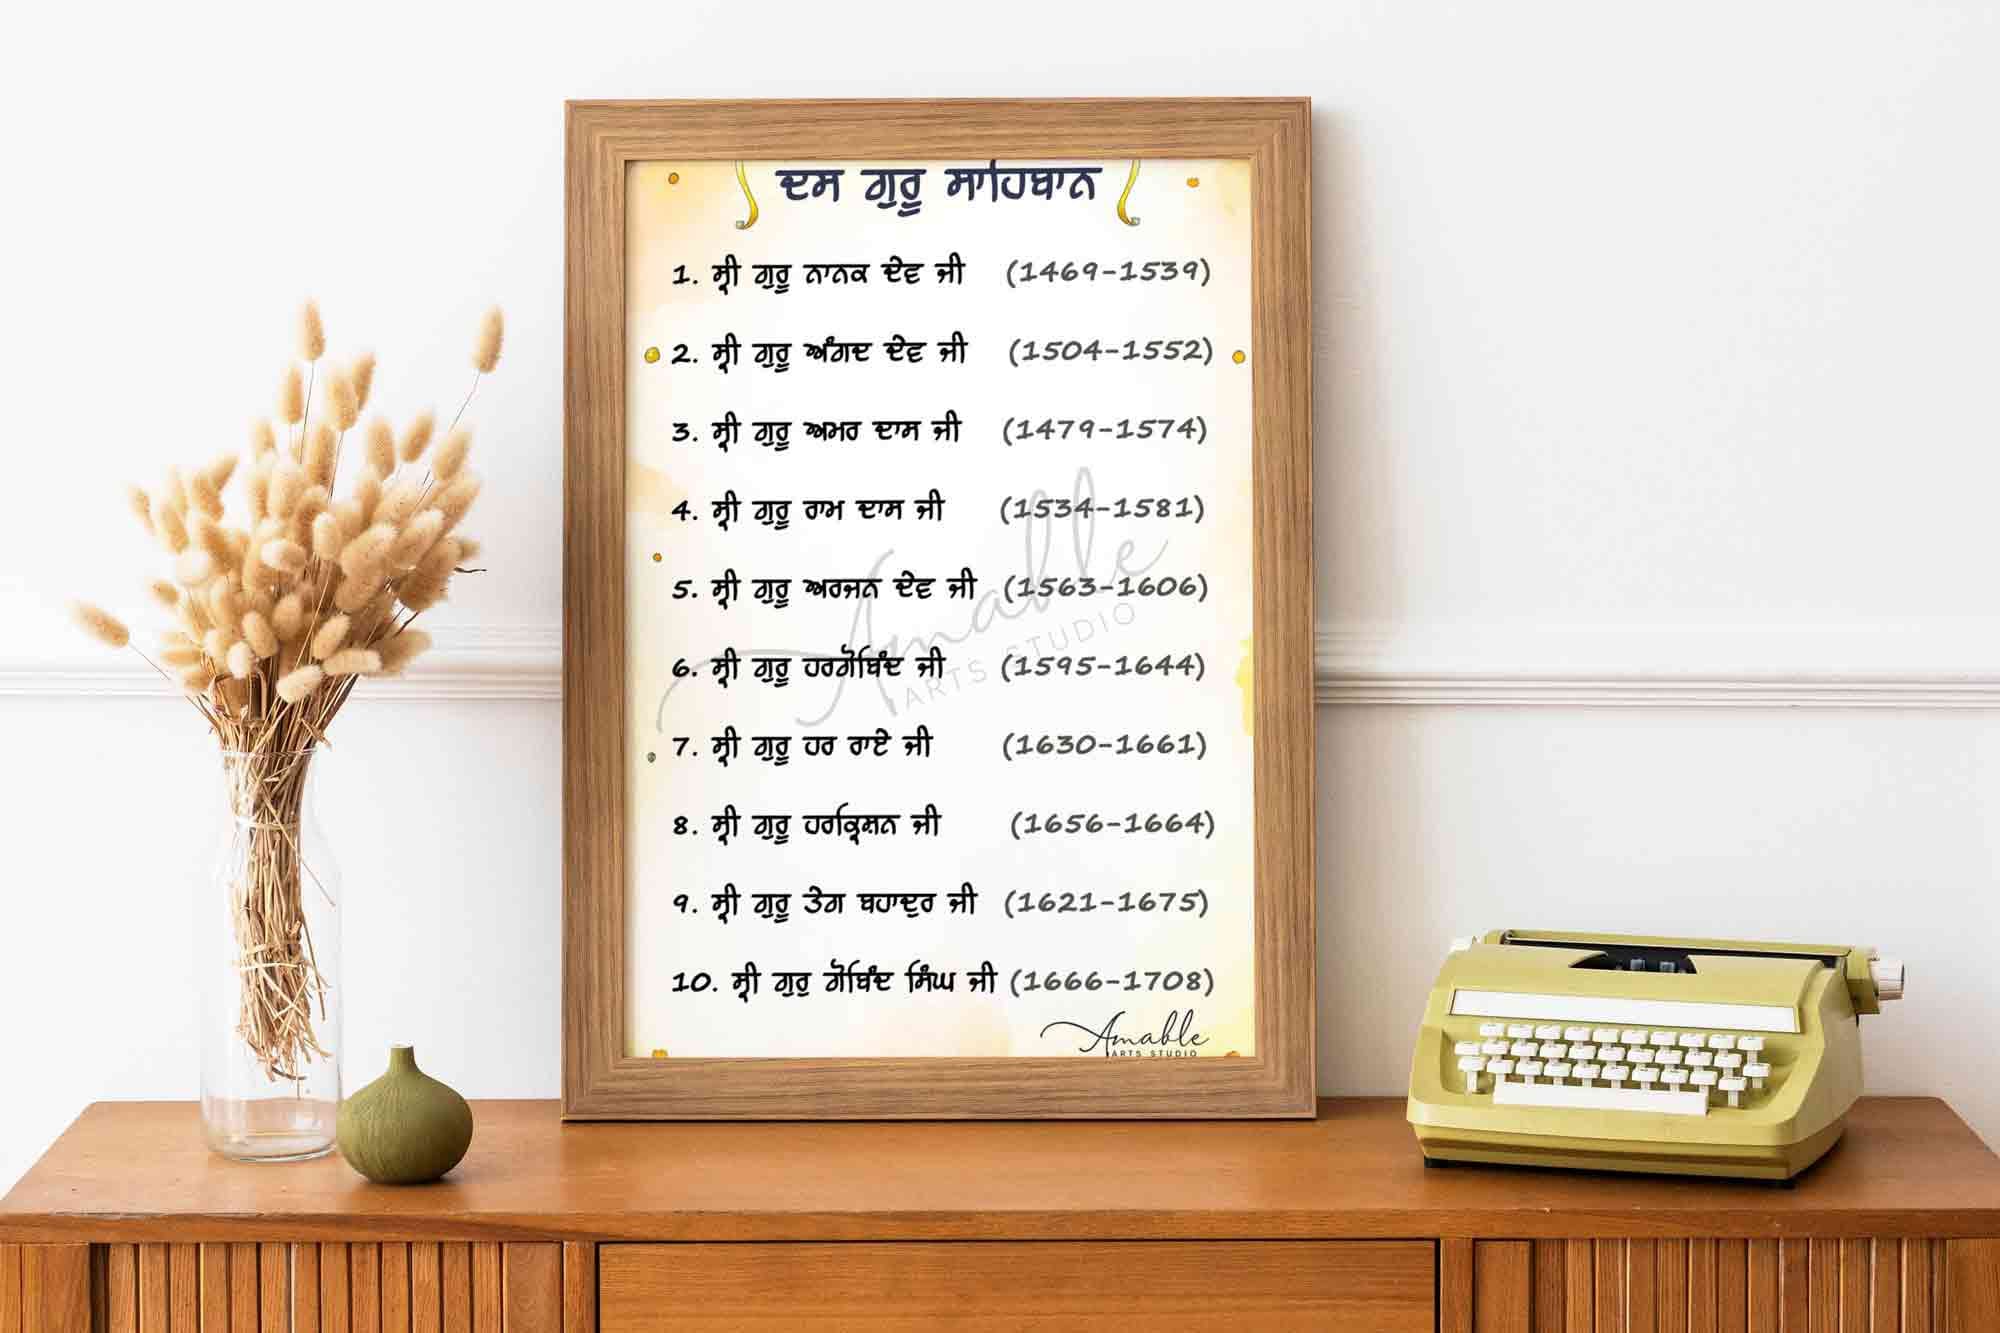 ਦਸ ਗੁਰੂ ਸਾਹਿਬਾਨ
1. ਸ੍ਰੀ ਗੁਰੂ ਨਾਨਕ ਦੇਵ ਜੀ (1469-1539)
2. ਸ੍ਰੀ ਗੁਰੂ ਅੰਗਦ ਦੇਵ ਜੀ (1504-1552)
3. ਸ੍ਰੀ ਗੁਰੂ ਅਮਰ ਦਾਸ ਜੀ (1479-1574)
4. ਸ੍ਰੀ ਗੁਰੂ ਰਾਮ ਦਾਸ ਜੀ (1534-1581)
5. ਸ੍ਰੀ ਗੁਰੂ ਅਰਜਨ ਦੇਵ ਜੀ (1563-1606)
6. ਸ੍ਰੀ ਗੁਰੂ ਹਰਗੋਬਿੰਦ ਜੀ (1595-1644)
7. ਸ੍ਰੀ ਗੁਰੂ ਹਰ ਰਾਏ ਜੀ (1630-1661)
8. ਸ੍ਰੀ ਗੁਰੂ ਹਰਕ੍ਰਿਸ਼ਨ ਜੀ (1656-1664)
9. ਸ੍ਰੀ ਗੁਰੂ ਤੇਗ ਬਹਾਦੁਰ ਜੀ (1621-1675)
10. ਸ੍ਰੀ ਗੁਰੁ ਗੋਬਿੰਦ ਸਿੰਘ ਜੀ (1666-1708)
Amable
ARTS STUDIO
Amable
ARTS STUDIO